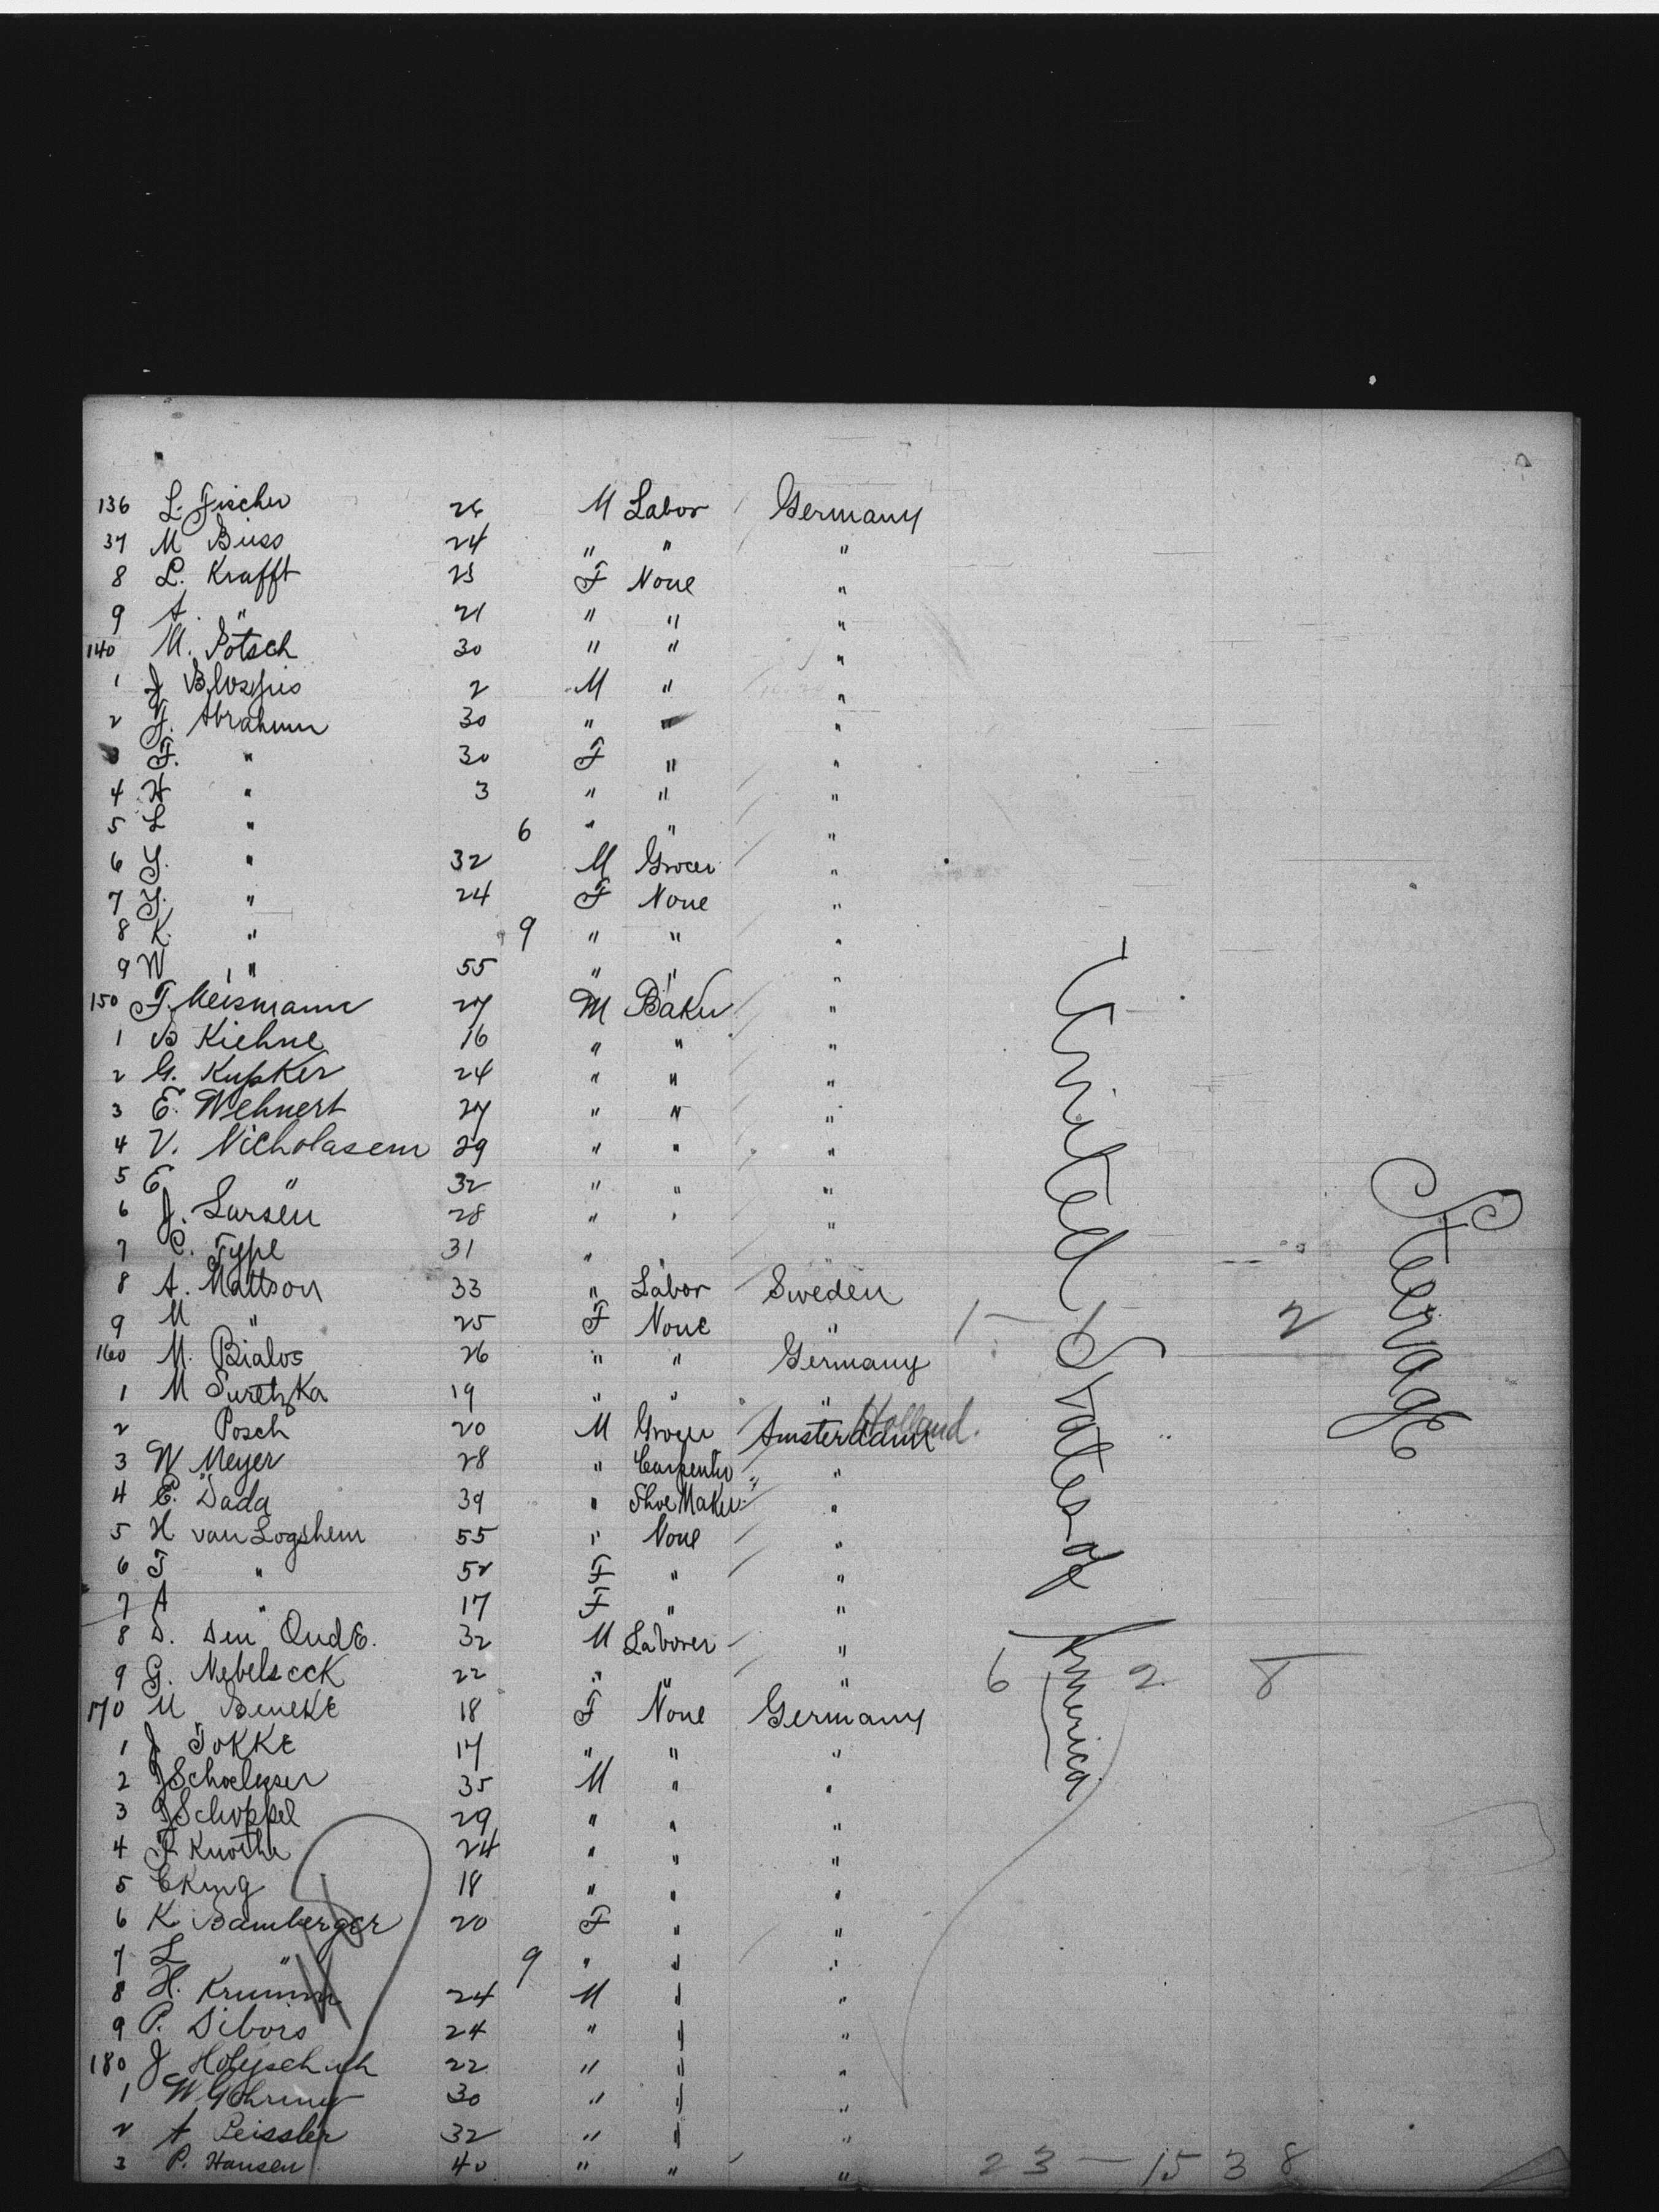 136 L. Fischer 26 M Labor Germany
37 M Buss 24 " " "
8 L. Krafft 23 F None "
9 A. " 21 " " "
140 M. Potsch 30 " " "
1 J 2 M " "
2 J. Abrahum 30 " " "
3 F. " 30 F " "
4 H " 3 " " "
5 L " 6 " " "
6 Y. " 32 M Grocer "
7 Y. " 24 F None "
8 K. " 9 " " "
9 W " 55 " " "
150 F. Meismann 27 M Baker "
1 B Kiehne 16 " " "
2 G. Kupker 24 " " "
3 E. Wehnert 27 " " "
4 V. Nicholasem 29 " " "
5 E " 32 " " "
6 J. Larsen 28 " " "
7 C. Type 31 "
8 A. Mattson 33 " Labor Sweden
9 M " 25 F None " 1 — 1 2
160 M. Bialos 26 " " Germany
1 M Suretzka 19 " " "
2 Posch 20 M Grocer Amsterdam Holland.
3 W Meyer 28 " Carpenter "
4 E. Dada 39 " Shoe Maker "
5 H van Logshem 55 " None "
6 T " 52 F " "
7 A " 17 F " "
8 D. den Oude. 32 M Laborer "
9 G. Nebelseck 22 " " " 6 2 8
170 M Beneke 18 F None Germany
1 J Tokke 17 " " "
2 J 35 M " "
3 J Schoppel 29 " " "
4 F Knothe 24 " " "
5 E King 18 " " "
6 K Bamberger 20 F " "
7 L " 9 " " "
8 H. Krumm 24 M " "
9 P. Dibors 24 " " "
180 J 22 " " "
1 W. Gohring 30 " " "
2 A Peissler 32 " " "
3 P. Hansen 40 " " " 23 — 15 38
United States of America
Steerage